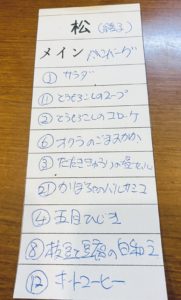 松(終了)
メイン ハンバーグ
① サラダ
⑪ とうもろこしのスープ
② とうもろこしのコロッケ
⑥ オクラのごまあえ
③ たたききゅうりの
㉑ かぼちゃのバルサミコ
④ 五目ひじき
⑧ 枝豆と豆腐の白和え
⑫ ホットコーヒー